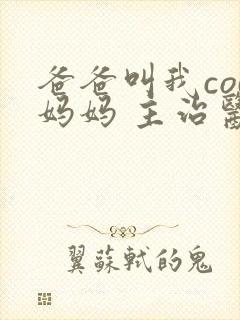 爸爸叫我co
妈妈 主治醫
翼蘇軾的鬼